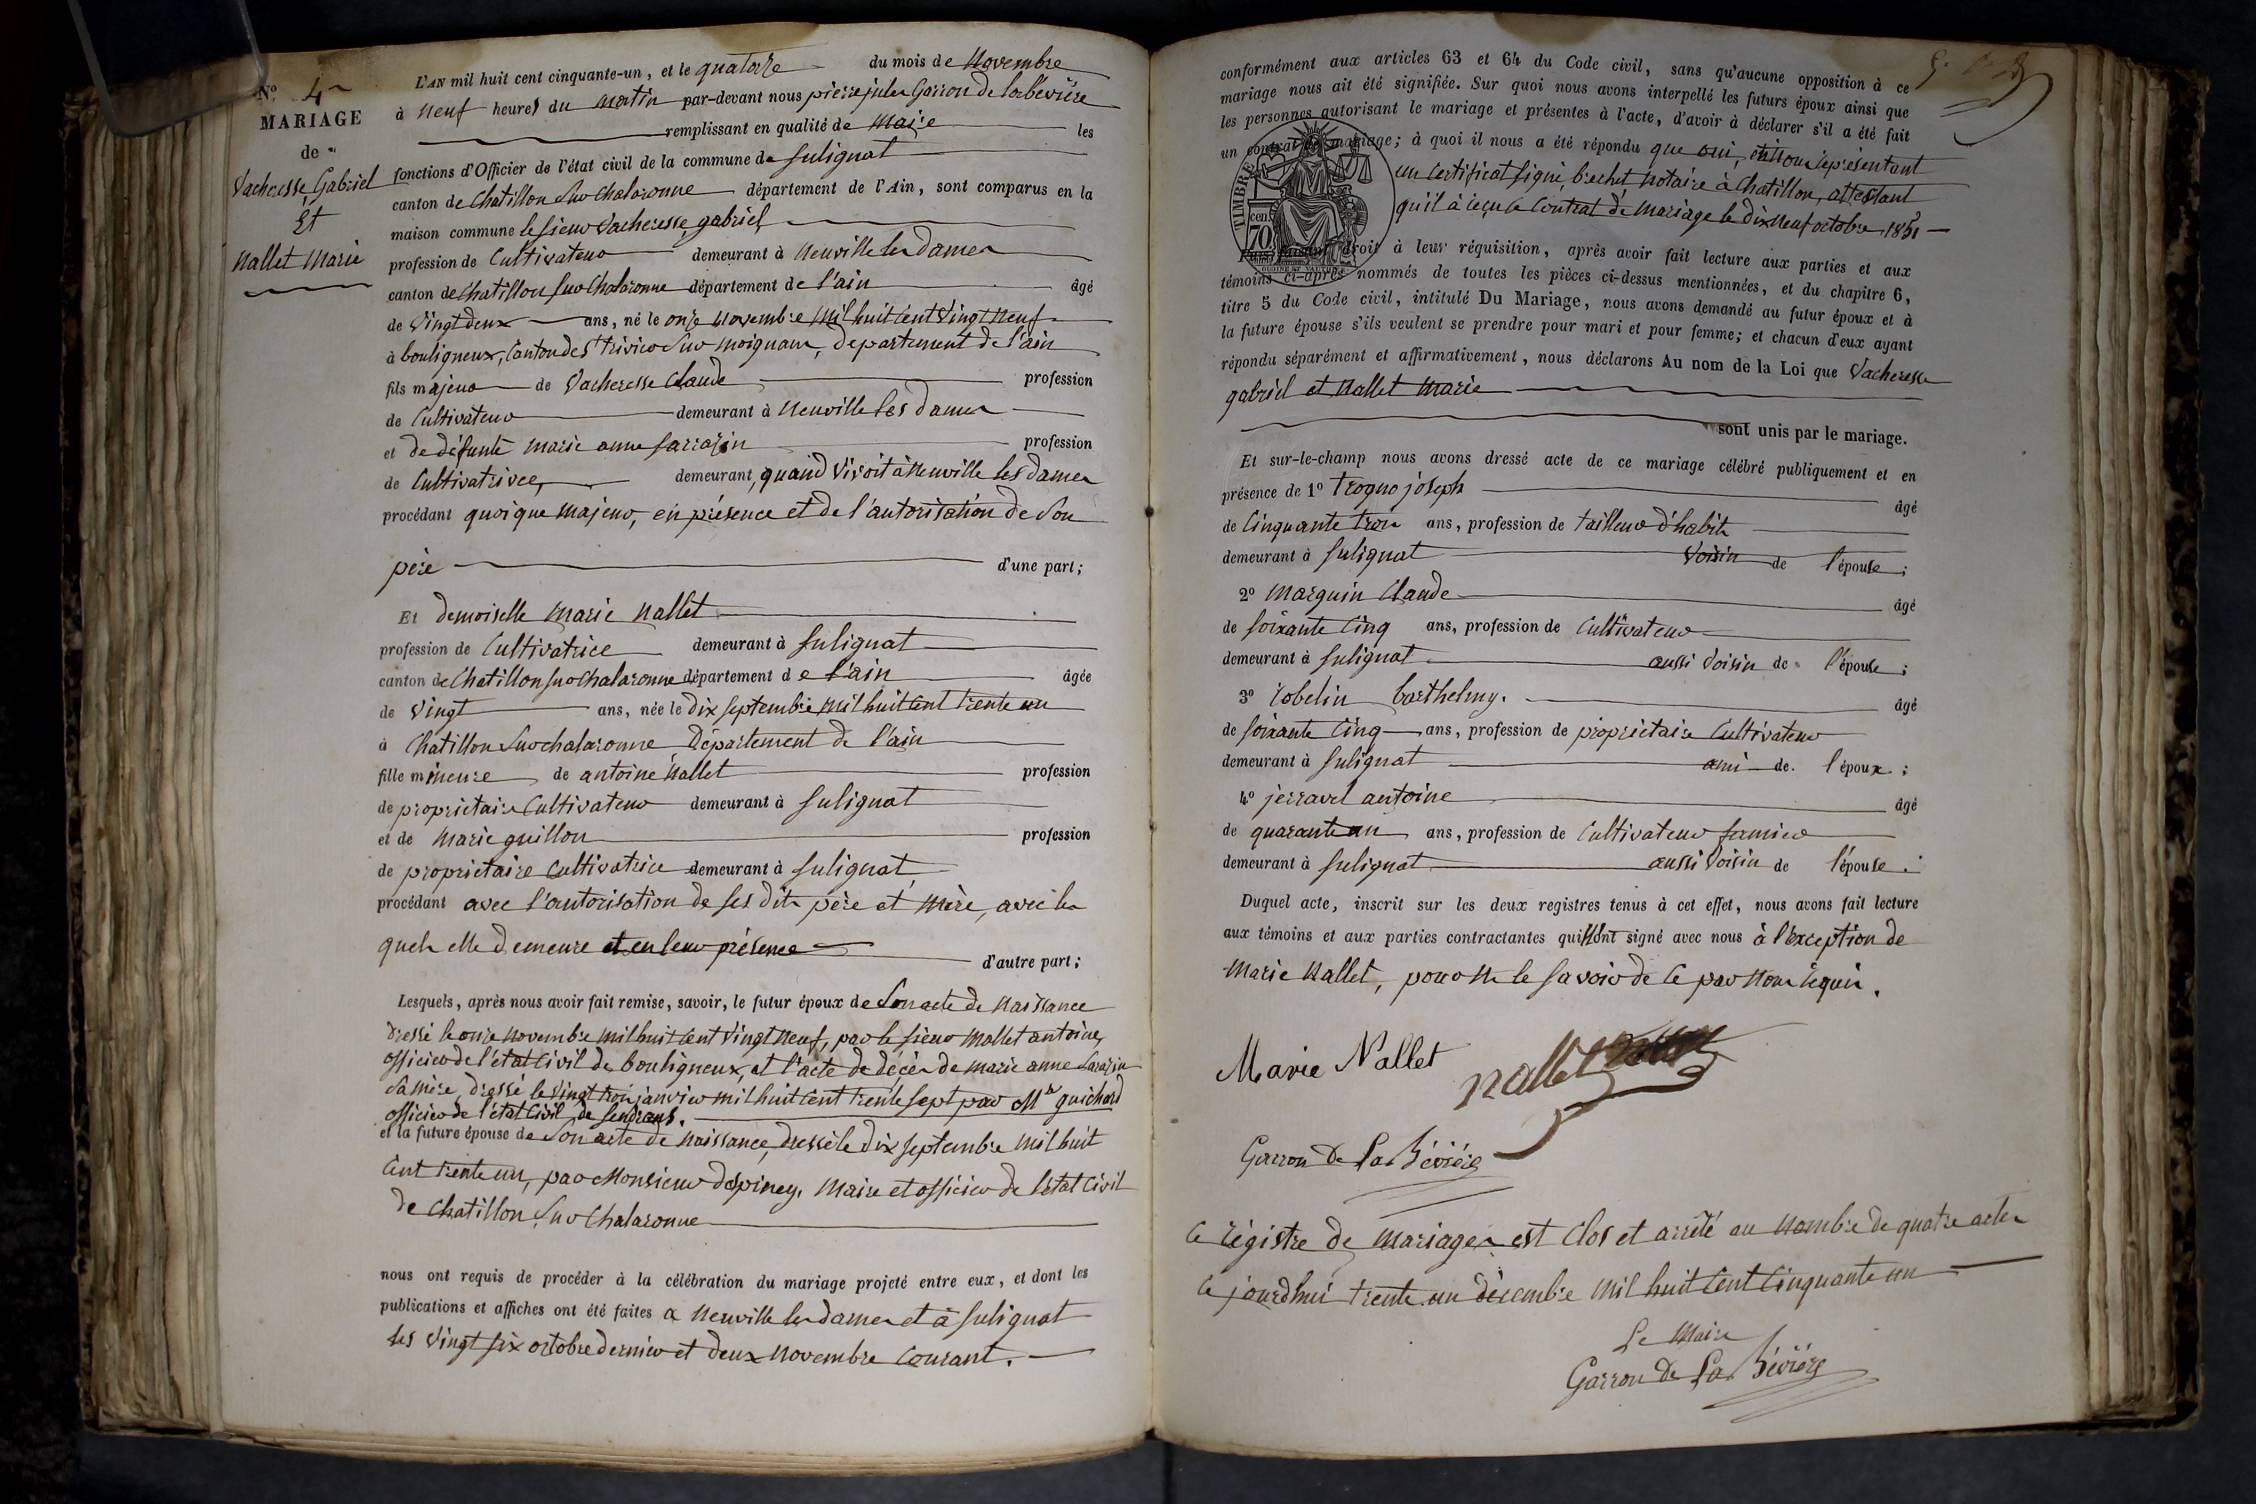 N° 4
MARIAGE
de
Vacheresse, Gabriel
Et
Nallet Marie
L'AN mil huit cent cinquante-un, et le quatorze du mois de Novembre
à neuf heures du matin par-devant nous pierre jules Garron de la bévière
remplissant en qualité de Maire les
fonctions d'Officier de l'état civil de la commune de Sulignat
canton de Chatillon sur Chalaronne département de l'Ain, sont comparus en la
maison commune le sieur Vacheresse, gabriel,
profession de Cultivateur demeurant à Neuville les Dames
canton de Chatillon sur Chalaronne département de l'ain âgé
de Vingt deux ans, né le onze Novembre Mil huit Cent Vingt Neuf
à bouligneux, Canton de St trivier sur moignans, département de l'ain
fils majeur de Vacheresse Claude profession
de Cultivateur demeurant à Neuville les dames
et de défunte marie anne Sarrazin profession
de Cultivatrice, demeurant, quand Vivoit à Neuville les dames
procédant quoique majeur, en présence et de l'autorisation de Son
père d'une part;
Et demoiselle Marie Nallet
profession de Cultivatrice demeurant à Sulignat
canton de Chatillon sur Chalaronne département de l'ain âgée
de Vingt ans, née le dix Septembre Mil huit Cent trente un
à Chatillon Sur chalaronne Département de l'ain
fille mineure de antoine Nallet profession
de propriétaire Cultivateur demeurant à Sulignat
et de Marie guillon profession
de propriétaire Cultivatrice demeurant à Sulignat,
procédant avec l'autorisation de ses dits père et Mère, avec les
quels elle demeure et en leur présence
d'autre part;
Lesquels, après nous avoir fait remise, savoir, le futur époux de Son acte de Naissance
dressé le onze Novembre Mil huit Cent Vingt Neuf, par le sieur Mallet antoine,
officier de l'état Civil de bouligneux, et l'acte de décès de marie anne Sarazin
sa mère, dressé le Vingt trois janvier mil huit Cent trente sept par Mr guichard
officier de l'état Civil de Sandrans.
et la future épouse de Son acte de Naissance, dressé le dix Septembre Mil huit
Cent trente un, par Monsieur despiney, Maire et officier de l'état Civil
de Chatillon, Sur Chalaronne
nous ont requis de procéder à la célébration du mariage projeté entre eux, et dont les
publications et affiches ont été faites a Neuville les dames et à Sulignat
les Vingt six octobre dernier et deux Novembre Courant.
conformément aux articles 63 et 64 du Code civil, sans qu'aucune opposition à ce
mariage nous ait été signifiée. Sur quoi nous avons interpellé les futurs époux ainsi que
les personnes autorisant le mariage et présentes à l'acte, d'avoir à déclarer s'il a été fait
un contrat de mariage; à quoi il nous a été répondu que oui, en nous représentant
un Certificat signé, brechet Notaire à Chatillon, attestant
qu'il à reçu le Contrat de Mariage le dix Neuf octobre 1851
TIMBRE
cen.
70
Puis faisant droit à leur réquisition, après avoir fait lecture aux parties et aux
témoins ci-après nommés de toutes les pièces ci-dessus mentionnées, et du chapitre 6,
titre 5 du Code civil, intitulé Du Mariage, nous avons demandé au futur époux et à
la future épouse s'ils veulent se prendre pour mari et pour femme; et chacun d'eux ayant
répondu séparément et affirmativement, nous déclarons Au nom de la Loi que Vacheresse
gabriel et Nallet Marie
sont unis par le mariage.
Et sur-le-champ nous avons dressé acte de ce mariage célébré publiquement et en
présence de 1° Trogno joseph âgé
de Cinquante trois ans, profession de tailleur d'habits
demeurant à Sulignat Voisin de l'épouse;
2° Marguin Claude âgé
de soixante Cinq ans, profession de Cultivateur
demeurant à Sulignat aussi Voisin de l'épouse;
3° robelin barthelmy. âgé
de soixante Cinq ans, profession de propriétaire Cultivateur
demeurant à Sulignat ami de l'époux;
4° jerravel antoine âgé
de quarante un ans, profession de Cultivateur fermier
demeurant à Sulignat aussi Voisin de l'épouse.
Duquel acte, inscrit sur les deux registres tenus à cet effet, nous avons fait lecture
aux témoins et aux parties contractantes qui ont signé avec nous à l'exception de
Marie Nallet, pour ne le savoir de ce par Nous requis.
Marie Nallet
nallet
Garron de La Bévière
Ce régistre de Mariages est Clos et arrêté au Nombre de quatre actes
Ce jourdhui trente un décembre Mil huit Cent Cinquante un
Le Maire
Garron de La Bévière